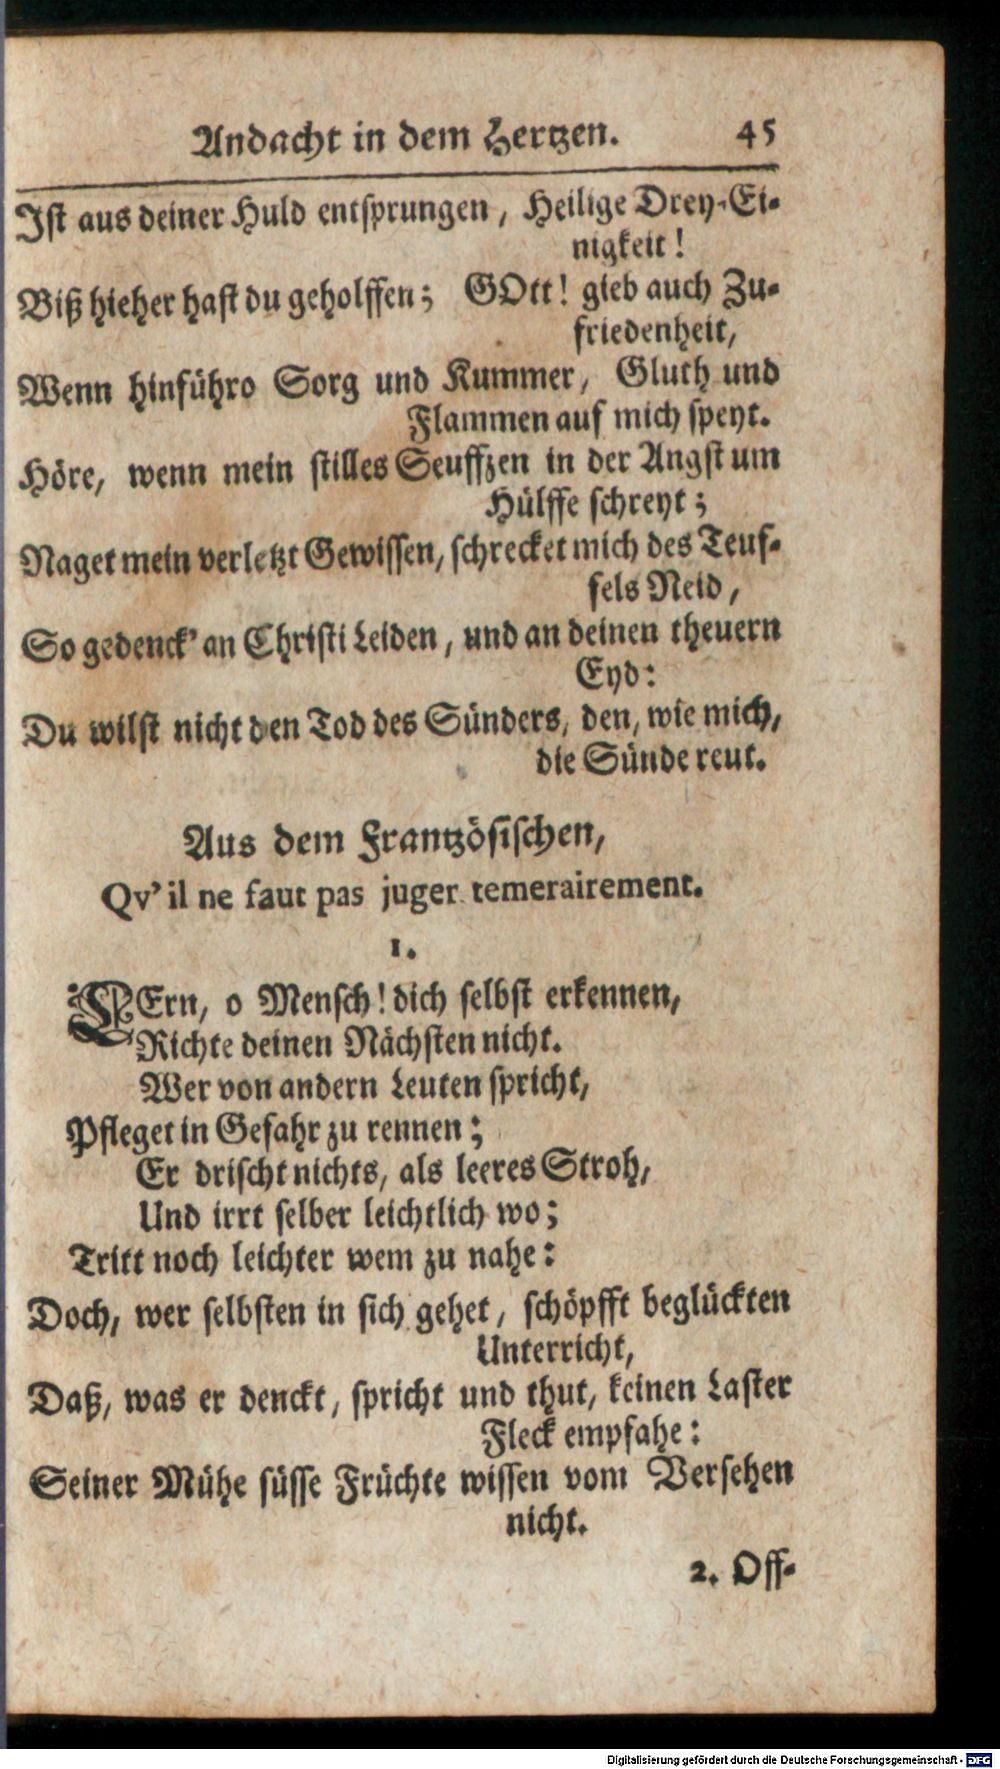 Andacht in dem Hertzen. 45
Ist aus deiner Huld entsprungen, Heilige Drey-Ei-
nigkeit!
Biß hieher hast du geholffen; GOtt! gieb auch Zu-
friedenheit,
Wenn hinführo Sorg und Kummer, Gluth und
Flammen auf mich speyt.
Höre, wenn mein stilles Seuffzen in der Angst um
Hülffe schreyt;
Naget mein verletzt Gewissen, schrecket mich des Teuf-
fels Neid,
So gedenck' an Christi Leiden, und an deinen theuern
Eyd:
Du wilst nicht den Tod des Sünders, den, wie mich,
die Sünde reut.
Aus dem Frantzösischen,
Qv' il ne faut pas juger temerairement.
1.
LErn, o Mensch! dich selbst erkennen,
Richte deinen Nächsten nicht.
Wer von andern Leuten spricht,
Pfleget in Gefahr zu rennen;
Er drischt nichts, als leeres Stroh,
Und irrt selber leichtlich wo;
Tritt noch leichter wem zu nahe:
Doch, wer selbsten in sich gehet, schöpfft beglückten
Unterricht,
Daß, was er denckt, spricht und thut, keinen Laster
Fleck empfahe:
Seiner Mühe süsse Früchte wissen vom Versehen
nicht.
2. Off-
Digitalisierung gefördert durch die Deutsche Forschungsgemeinschaft - DFG